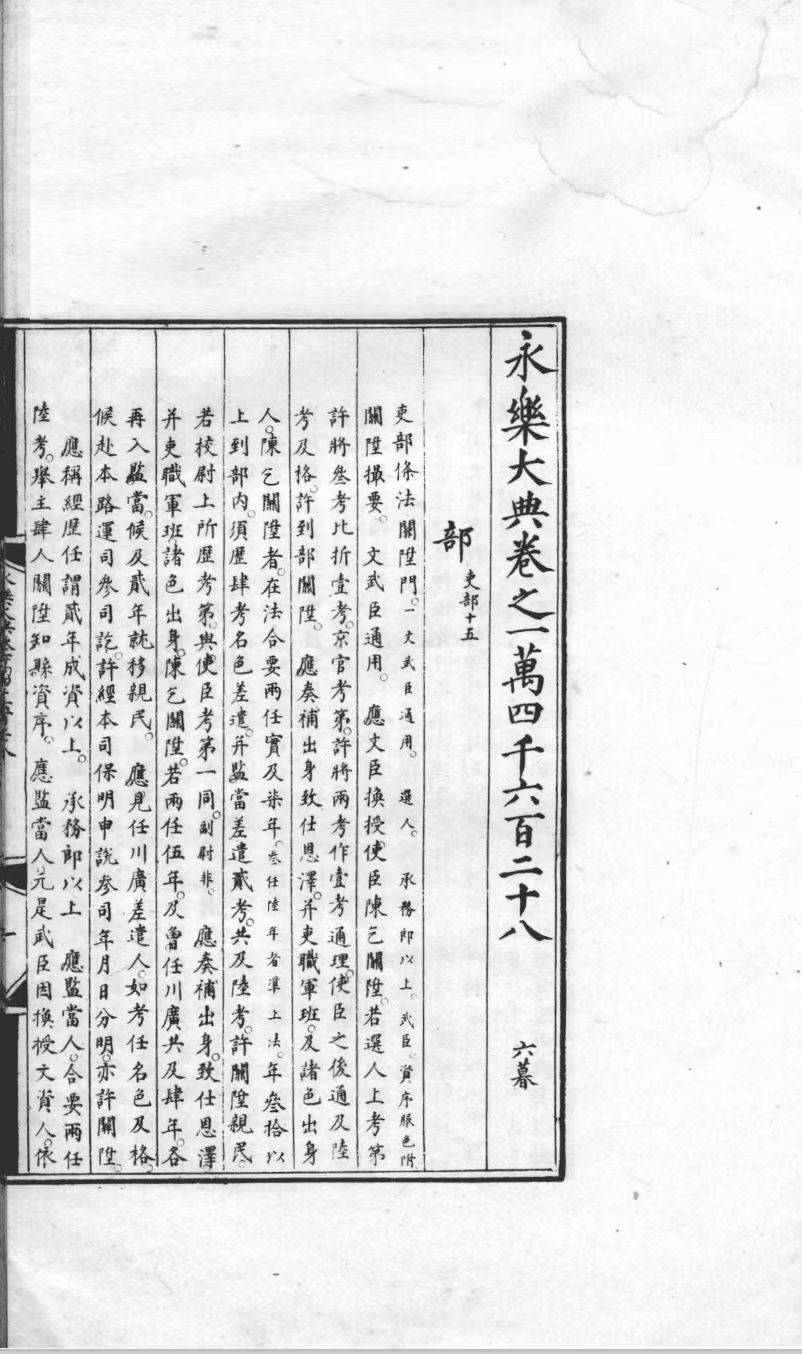 永樂大典卷之一萬四千六百二十八 六暮
部 吏部十五
吏部條法關陞門。一文武臣通用。 選人。 承務郎以上。武臣。資序服色附
關陞撮要。 文武臣通用。 應文臣換授使臣陳乞關陞。若選人上考第
許將叄考比折壹考。京官考第。許將兩考作壹考通理。使臣之後通及陸
考及格。許到部關陞。 應奏補出身致仕恩澤。并吏職軍班。及諸色出身
人。陳乞關陞者。在法合要兩任實及柒年。叄任陸年者準上法。年叄拾以
上到部內。須歷肆考名色差遣。并監當差遣貳考。共及陸考。許關陞親民。
若校尉上所歷考第。與使臣考第一同。副尉非。 應奏補出身。致仕恩澤
并吏職軍班諸色出身。陳乞關陞。若兩任伍年。及曾任川廣共及肆年。各
再入監當。候及貳年就移親民。 應見任川廣差遣人。如考任名色及格。
候赴本路運司叅司訖。許經本司保明申說叅司年月日分明。亦許關陞。
應稱經歷任謂貳年成資以上。 承務郎以上 應監當人。合要兩任
陸考。舉主肆人關陞知縣資序。 應監當人。元是武臣因換授文資人。依